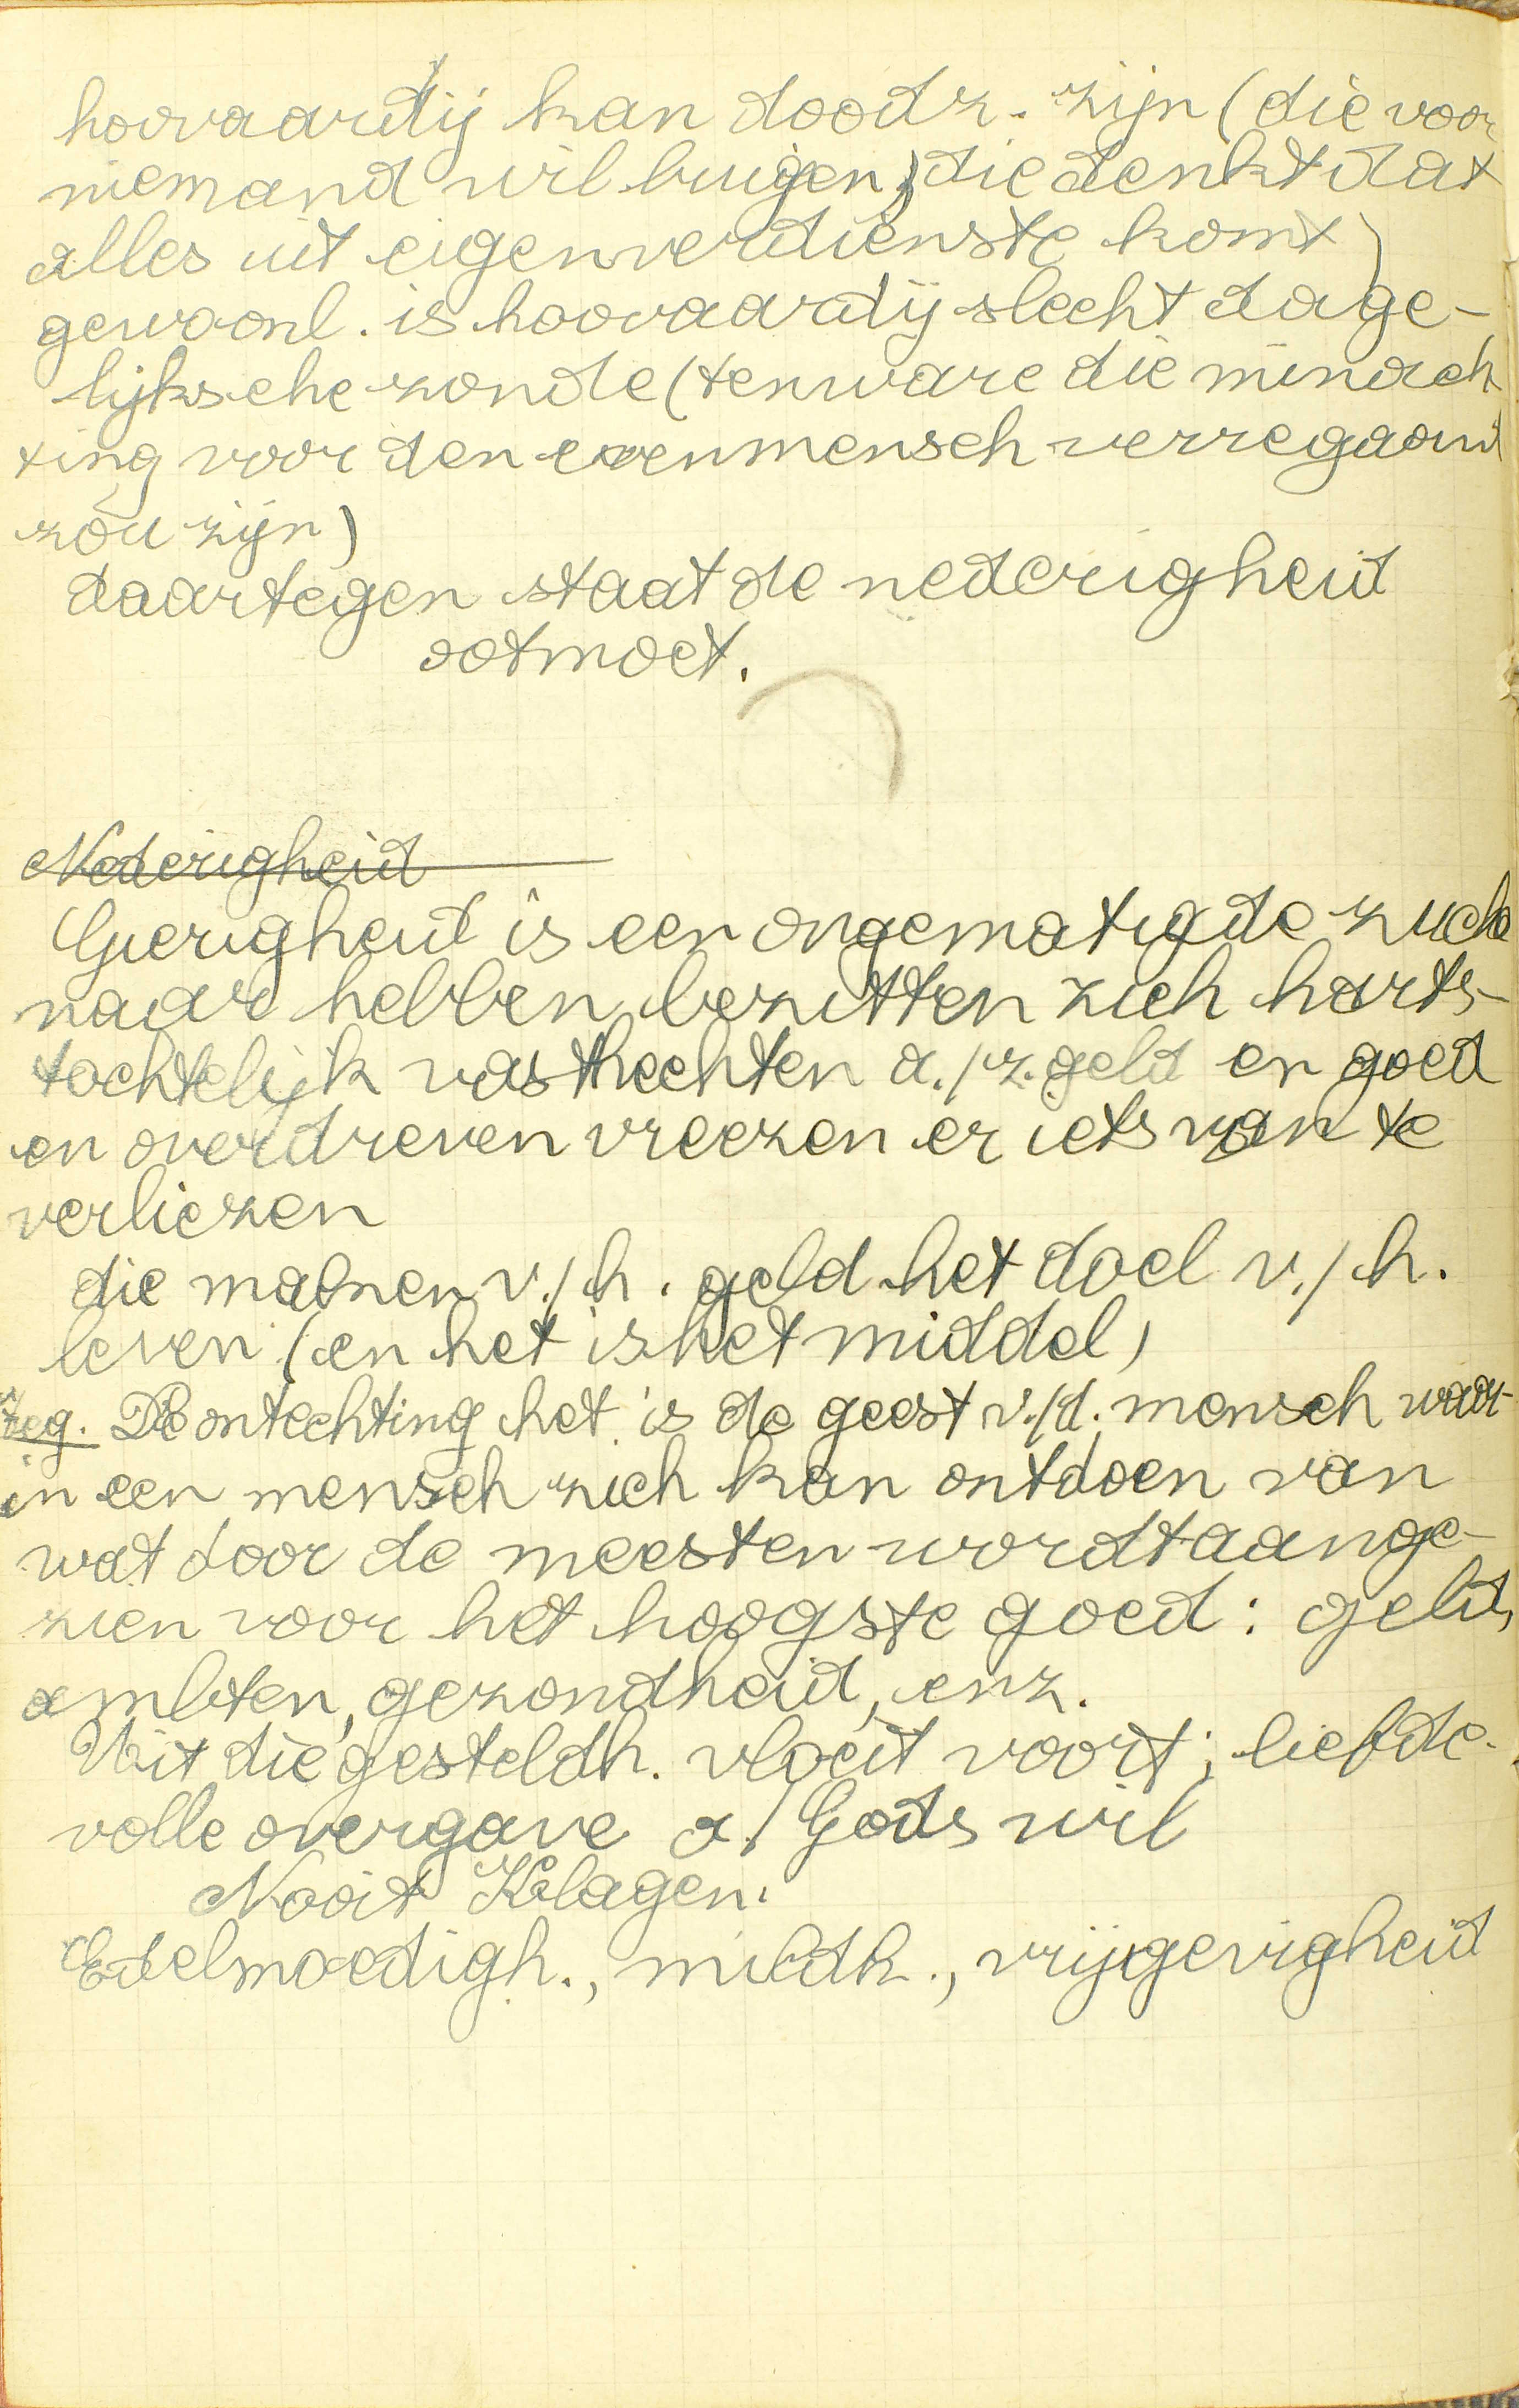 hoovaardij kan doodz. zijn (die voor
niemand wil buigen, die denkt dat
alles uit eigenverdienste komt)
gewoonl. is hoovaardij slecht dage-
lijksche zonde (tenware die minach
ting voor den evenmensch verregaand
zou zijn)
daartegen staat de nederigheid
ootmoet.
Nederigheid
Gierigheid is een ongematigde zucht
naar hebben, bezitten zich harts-
tochtelijk vasthechten a./z. geld en goed
en overdreven vreezen er iets van te
verliezen
die maken v./h. geld het doel v./h.
leven (en het is het middel)
teg. De ontechting het is de geest v./d. mensch waar-
in een mensch zich kan ontdoen van
wat door de meesten wordt aange-
zien voor het hoogste goed: geld,
ambten, gezondheid, enz.
Uit die gesteldh. vloeit voort; liefde-
volle overgave a./ Gods wil
Nooit Klagen.
Edelmoedigh., mildh., vrijgevigheid